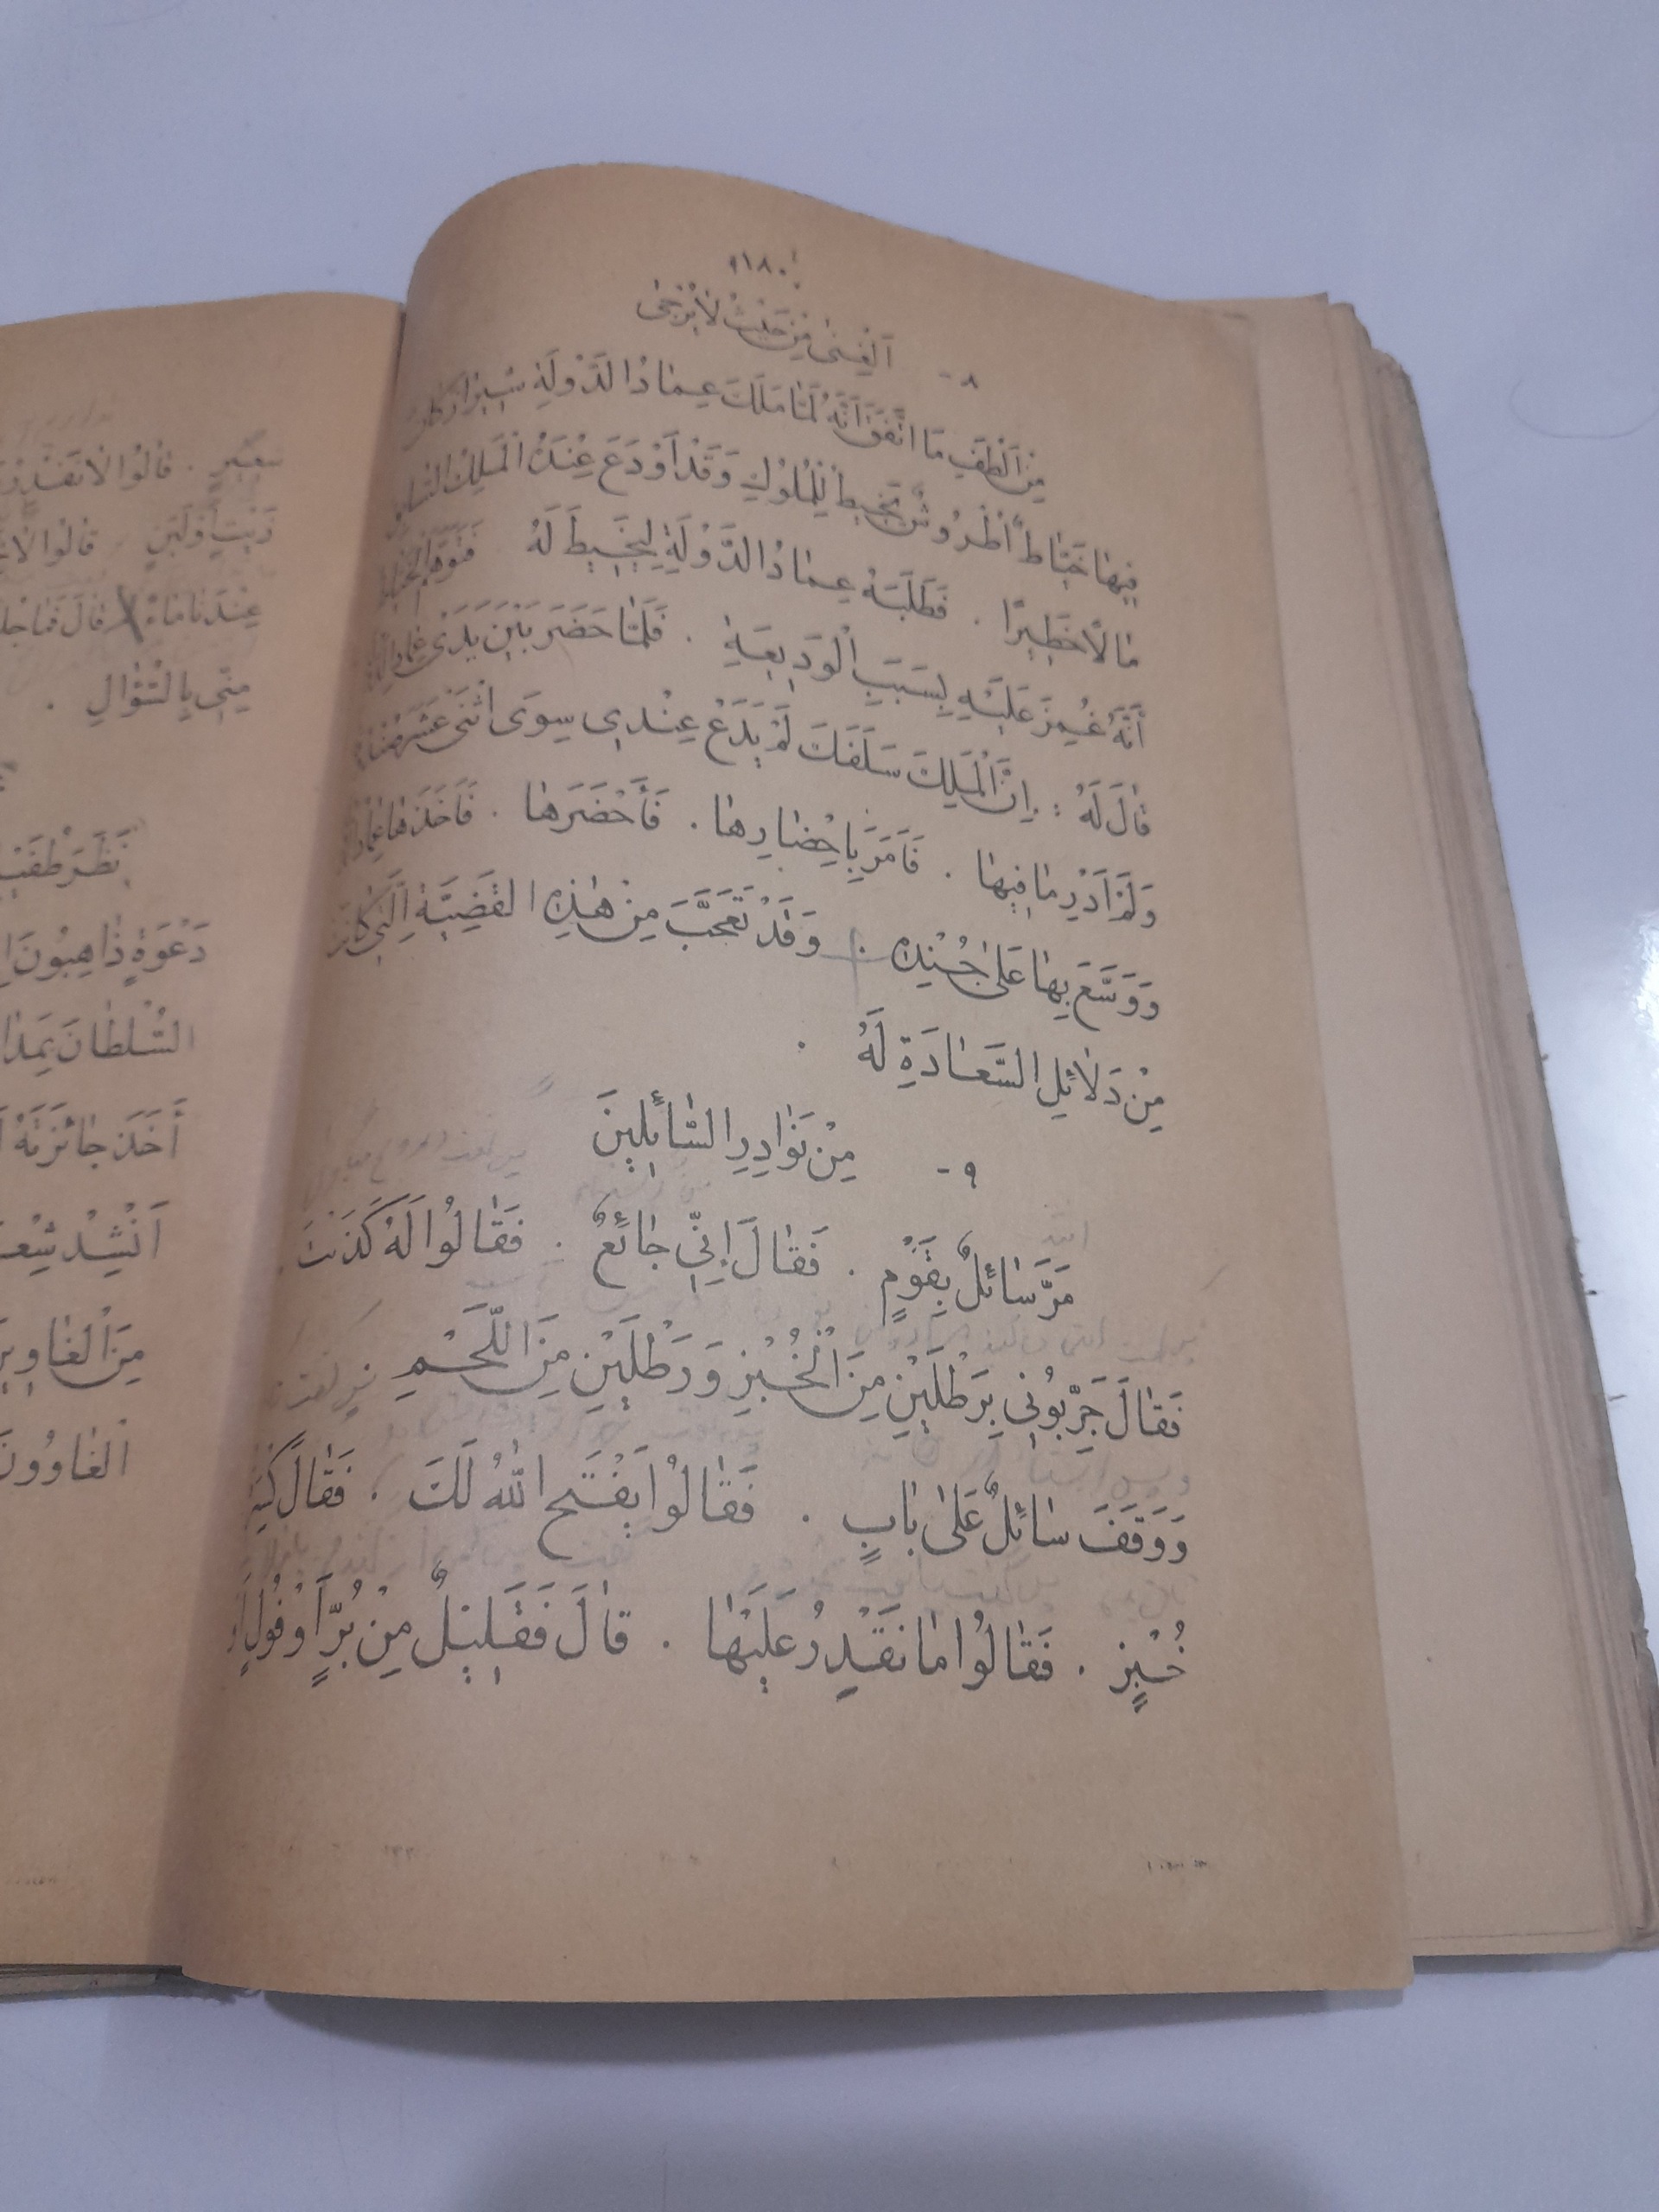 ١٨٠
٨ - اَلْغِنٰى مِنْ حَيْثُ لَا يُرْجٰى
مِنْ اَلْطَفِ مَا اتَّفَقَ اَنَّهُ لَمَّا مَلَكَ عِمَادُ الدَّوْلَةِ شِيرَازَ كَانَ
فِيهَا خَيَّاطٌ اُطْرُوشٌ يَخِيطُ لِلْمُلُوكِ وَقَدْ اَوْدَعَ عِنْدَهُ الْمَلِكُ
مَالًا خَطِيرًا . فَطَلَبَهُ عِمَادُ الدَّوْلَةِ لِيَخِيطَ لَهُ فَتَوَهَّمَ الْخَيَّاطُ
أَنَّهُ غُمِزَ عَلَيْهِ بِسَبَبِ الْوَدِيعَةِ . فَلَمَّا حَضَرَ بَيْنَ يَدَىْ عِمَادِ
قَالَ لَهُ : إِنَّ الْمَلِكَ سَلَفَكَ لَمْ يَدَعْ عِنْدِي سِوَى اثْنَىْ عَشَرَ
وَلَمْ اَدْرِ مَا فِيهَا . فَاَمَرَ بِاِحْضَارِهَا . فَأَحْضَرَهَا . فَاَخَذَهَا عِمَادُ
وَوَسَّعَ بِهَا عَلَى جُنْدِهِ . وَقَدْ تَعَجَّبَ مِنْ هٰذِهِ الْقَضِيَّةِ اَلَّتِي كَانَتْ
مِنْ دَلَائِلِ السَّعَادَةِ لَهُ .
٩ - مِنْ نَوَادِرِ السَّائِلِينَ
مَرَّ سَائِلٌ بِقَوْمٍ . فَقَالَ إِنِّي جَائِعٌ . فَقَالُوا لَهُ كَذَبْتَ .
فَقَالَ جَرِّبُونِي بِرَطْلَيْنِ مِنَ الْخُبْزِ وَرَطْلَيْنِ مِنَ اللَّحْمِ
وَوَقَفَ سَائِلٌ عَلَى بَابٍ . فَقَالُوا يَفْتَحِ اللّٰهُ لَكَ . فَقَالَ كِسْرَةَ
خُبْزٍ . فَقَالُوا مَا نَقْدِرُ عَلَيْهَا . قَالَ فَقَلِيلٌ مِنْ بُرٍّ أَوْ فُولٍ أَوْ
شَعِيرٍ . قَالُوا لَا نَقْدِرُ
زَيْتٍ أَوْ لَبَنٍ قَالُوا لَا
عِنْدَنَا مَاءٌ قَالَ فَمَا
مِنِّي بِالسُّؤَالِ .
نَظَرَ طُفَيْلِ
دَعْوَةٍ ذَاهِبُونَ
السُّلْطَانَ بِمَدَا
أَخَذَ جَائِزَتَهُ
اَنْشِدْ شِعْرَ
مِنَ الْغَاوِينَ
الْغَاوُونَ